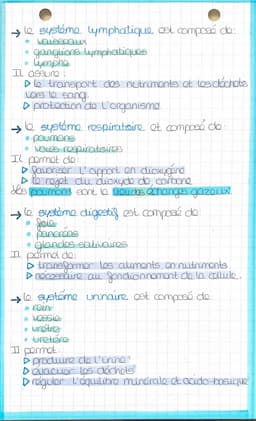 → le système lymphatique est composé de:
• vaisseaux
• ganglions lymphatiques
• lymphe
Il assure :
▷ le transport des nutriments et les déchets
vers le sang.
▷ protection de l'organisme
→ le système respiratoire et composé de:
• poumons
• voies respiratoires
Il permet de:
▷ favoriser l'apport en dioxygène
▷ le rejet du dioxyde de carbone
les poumons sont le lieu des échanges gazeux
→ le système digestif est composé de:
• foie
• pancréas
• glandes salivaires
Il permet de:
▷ transformer les aliments en nutriments
▷ nécessaire au fonctionnement de la cellule.
→ le système urinaire est composé de:
• rein
• vessie
• urètre
• uretère
Il permet:
▷ produire de l'urine
▷ évacuer les déchets
▷ réguler l'équilibre minérale et acido-basique